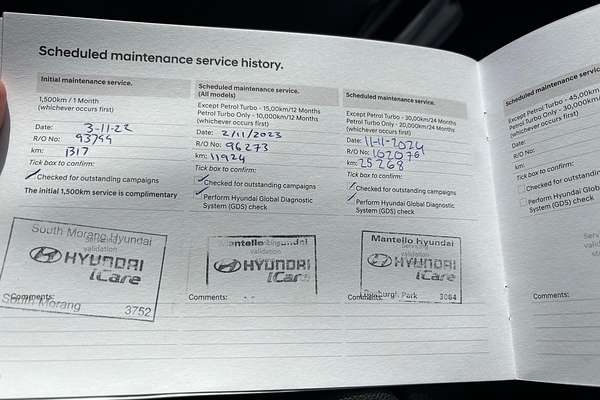 Scheduled maintenance service history.
Initial maintenance service.
1,500km / 1 Month
(whichever occurs first)
Date: 3-11-22
R/O No: 93799
km: 1317
Tick box to confirm:
Checked for outstanding campaigns
The initial 1,500km service is complimentary
South Morang Hyundai
Servicing
validation
HYUNDAI
iCare
Comments:
South Morang 3752
Scheduled maintenance service.
(All models)
Except Petrol Turbo - 15,000km/12 Months
Petrol Turbo Only - 10,000km/12 Months
(whichever occurs first)
Date: 2/11/2023
R/O No: 96273
km: 11924
Tick box to confirm:
Checked for outstanding campaigns
Perform Hyundai Global Diagnostic
System (GDS) check
Mantello
validation
HYUNDAI
iCare
Comments:
Scheduled maintenance service.
Except Petrol Turbo - 30,000km/24 Months
Petrol Turbo Only - 20,000km/24 Months
(whichever occurs first)
Date: 11-11-2024
R/O No: 102076
km: 25268
Tick box to confirm:
Checked for outstanding campaigns
Perform Hyundai Global Diagnostic
System (GDS) check
Mantello Hyundai
validation
HYUNDAI
iCare
Comments:
Park 3064
Scheduled maintenance
Except Petrol Turbo - 45,00
Petrol Turbo Only - 30,000
(whichever occurs first)
Date:
R/O No:
km:
Tick box to confirm:
Checked for outstanding
Perform Hyundai Global
System (GDS) check
Comments: